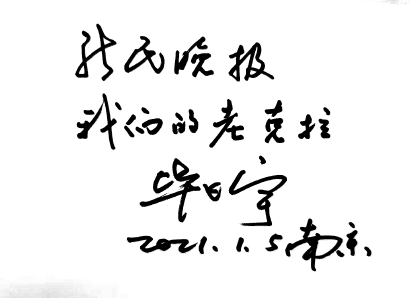 新民晚报
我们的老克拉
毕飞宇
2021.1.5.南京